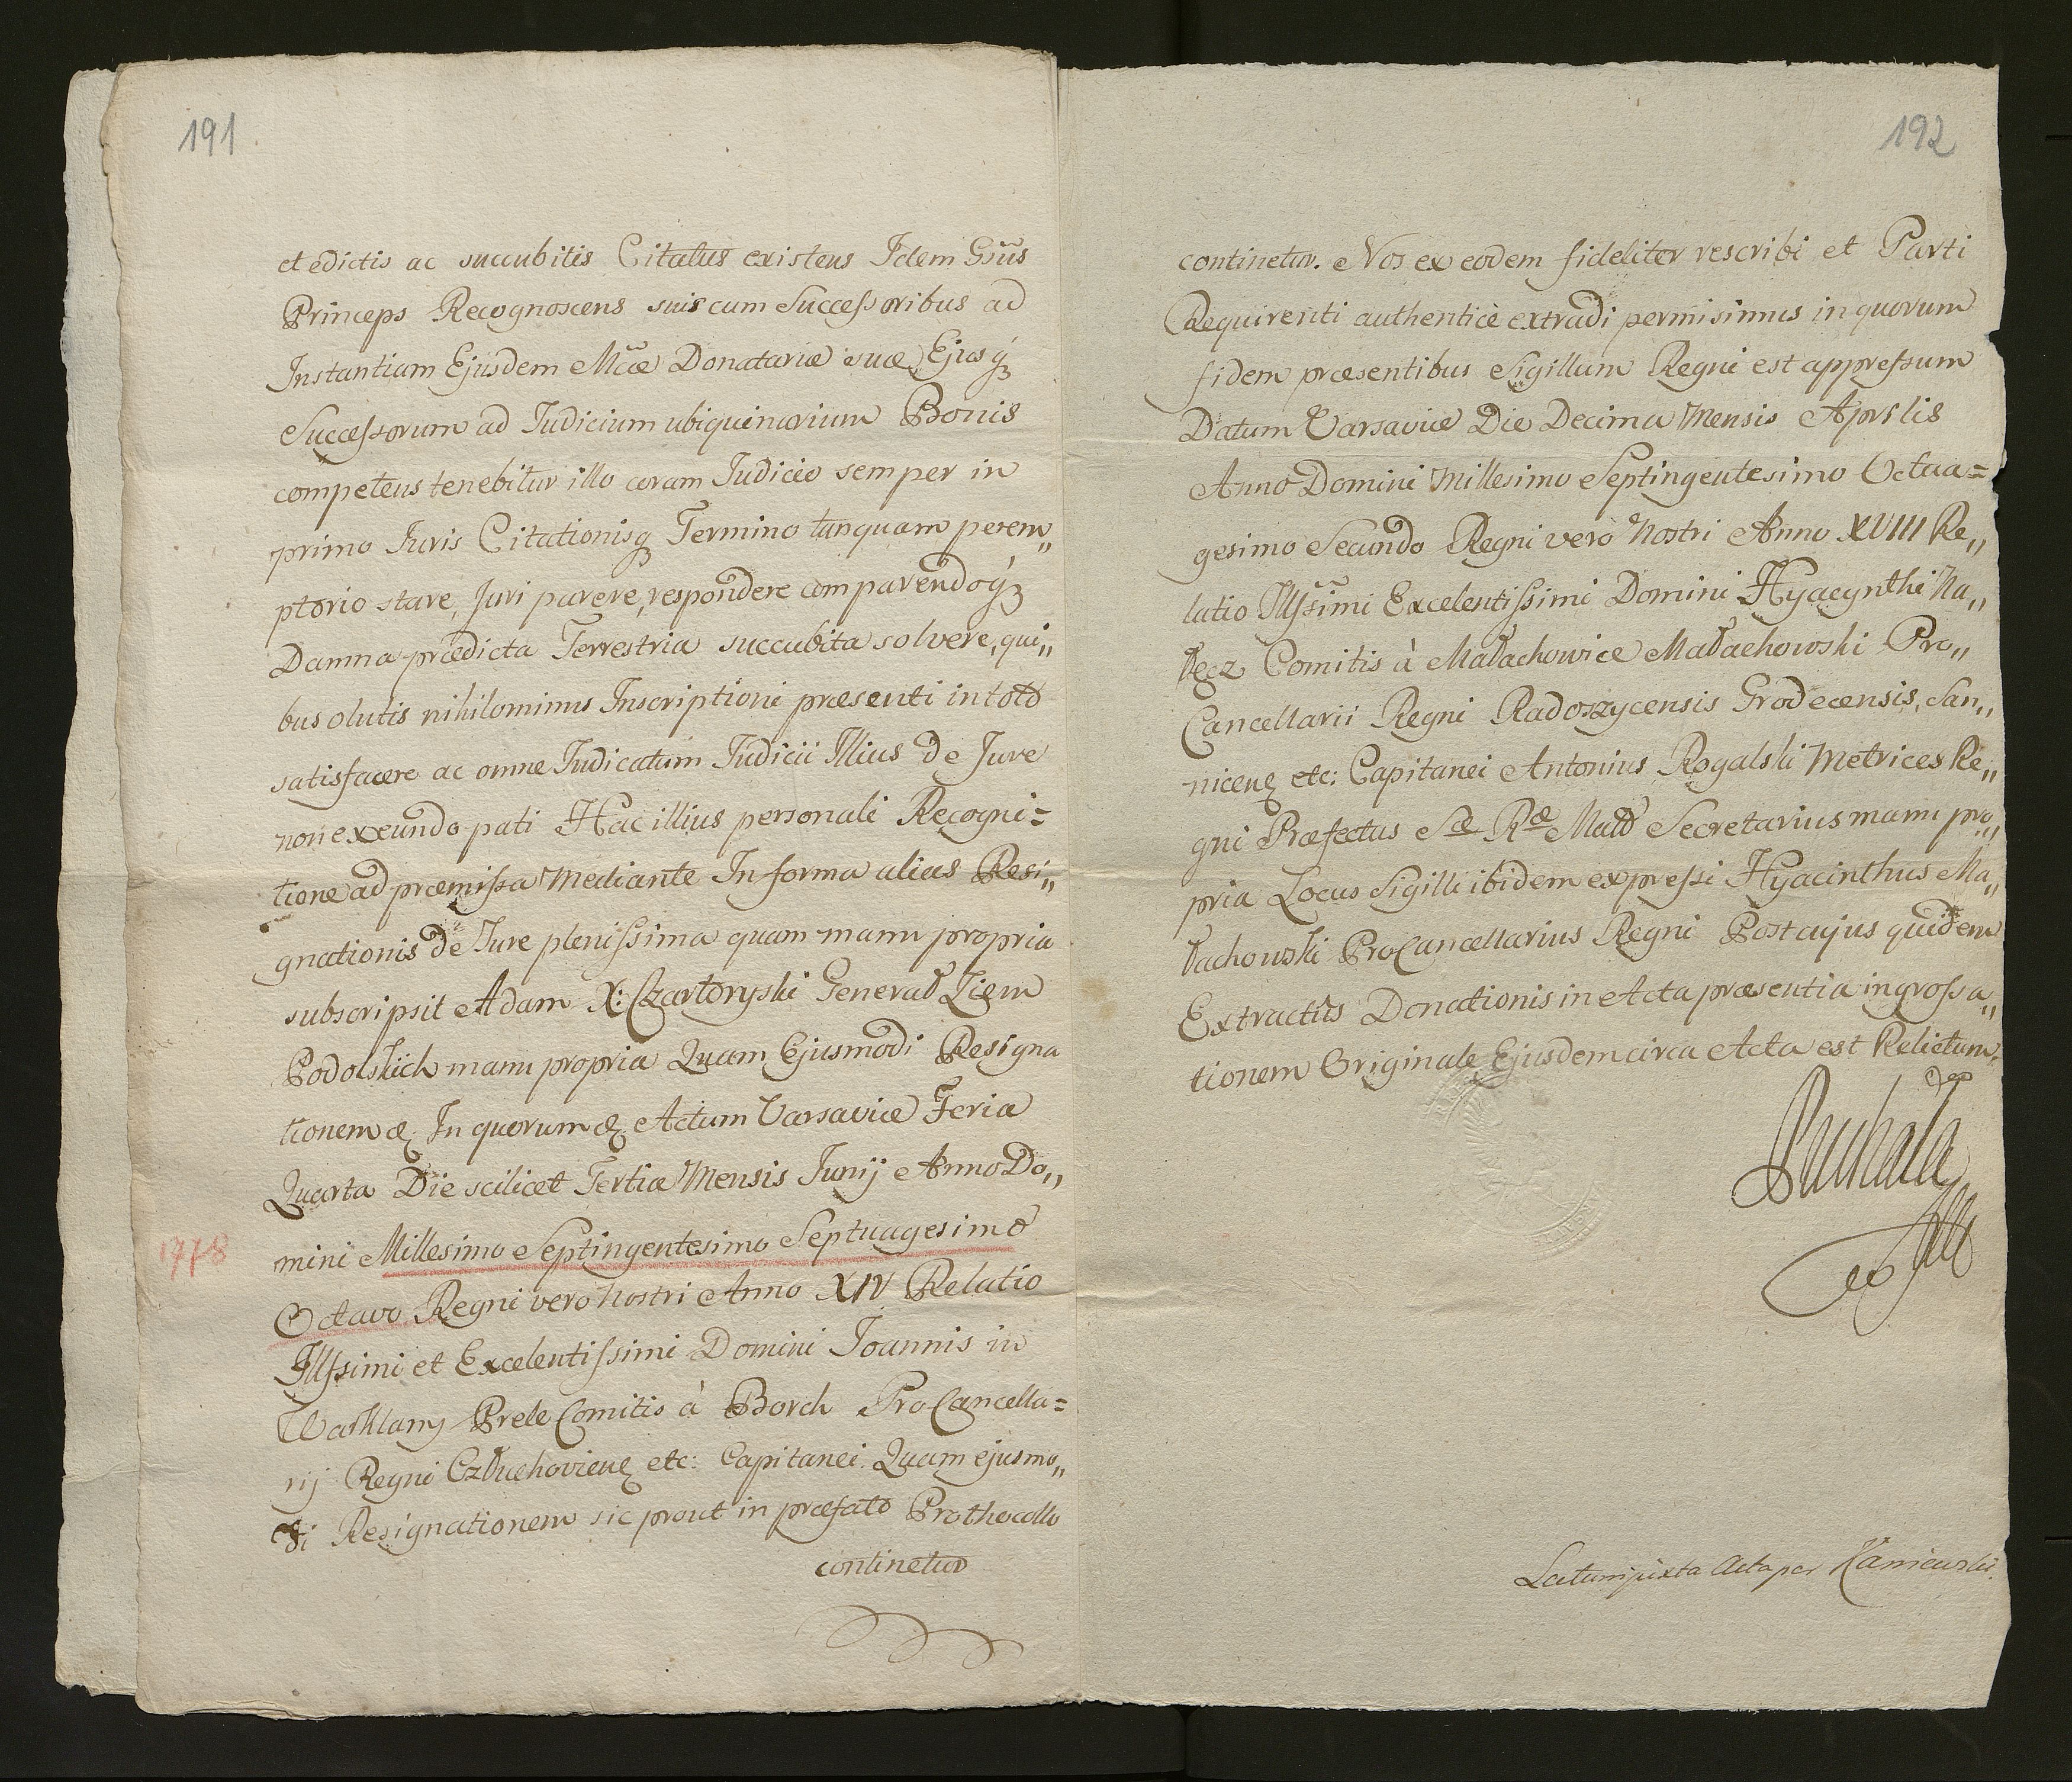 191
et edictis ac succubitis Citatus existens Idem Gsus
Princeps Recognoscens suis cum Successoribus ad
Instantiam Ejusdem Mcæ Donatariæ suæ Ejusq́
Successorum ad Iudicium ubiquinarium Bonis
competens tenebitur illo coram Iudicio semper in
primo Iuris Citationisq Termino tanquam perem„
ptorio stare, Juri parere, respondere comparendoq́
Damna prædicta Terrestria succubita solvere, qui„
bus olutis nihilominus Inscriptioni præsenti in toto
satisfacere ac omne Iudicatum Iudicii Illius de Jure
non exeundo pati Hac illius personali Recogni=
tione ad præmissa Mediante In forma alias Resi„
gnationis de Iure plenissima quam manu propria
subscripsit Adam X: Czartoryski Generał Ziem
Podolskich manu propria Quam Ejusmodi Resigna
tionem &. In quorum &. Actum Varsaviæ Feria
Quarta Die scilicet Tertia Mensis Junij Anno Do„
1778
mini Millesimo Septingentesimo Septuagesimo
Octavo Regni vero Nostri Anno XIV Relatio
Illssimi et Excelentissimi Domini Joannis in
Warklany Prele Comitis à Borch ProCancella=
rij Regni Człuchovien etc: Capitanei. Quam ejusmo„
di Resignationem sic prout in præfato Prothocollo
continetur
192
continetur. Nos ex eodem fideliter rescribi et Parti
Requirenti authenticè extradi permisimus in quorum
fidem præsentibus Sigillum Regni est appressum
Datum Varsaviæ Die Decima Mensis Aprslis
Anno Domini Millesimo Septingentesimo Octua=
gesimo Secundo Regni verò Nostri Anno XVIII Re„
latio Illssimi Excelentissimi Domini Hyacynthi Na„
łęcz Comitis à Małachowice Małachowski Pro„
Cancellarii Regni Radoszycensis Grodecensis, San„
nicen etc: Capitanei Antonius Rogalski Metrices Re„
gni Præfectus Sæ Ræ Mattis Secretarius manu pro„
pria Locus Sigilli ibidem expressi Hyacinthus Ma„
łachowski ProCancellarius Regni Post cujus quidem
Extractus Donationis in Acta præsentia ingrossa„
tionem Originale Ejusdem circa Acta est Relictum.
Lectum juxta Acta per Kaniewski.